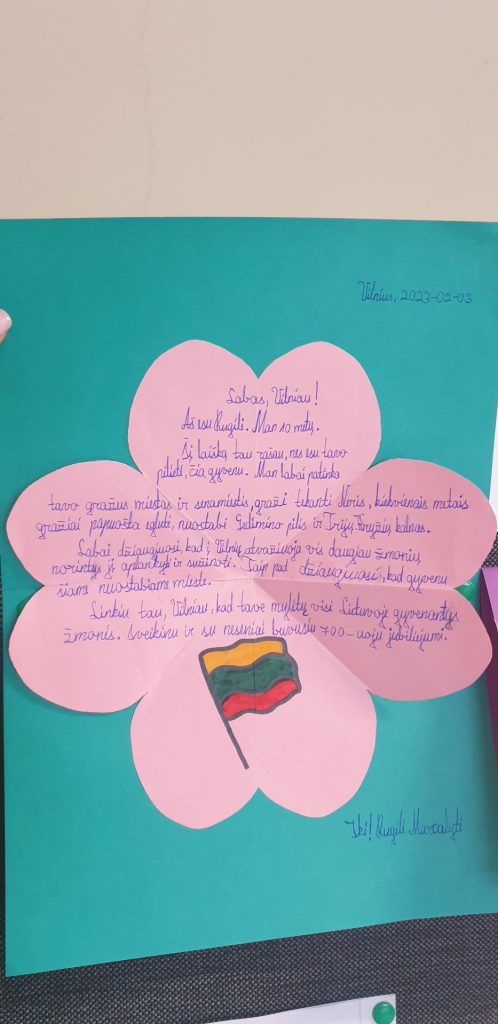 Vilnius, 2023-02-03
Labas, Vilniau!
Aš esu Rugilė. Man 10 metų.
Šį laišką tau rašau, nes esu tavo
pilietė, čia gyvenu. Man labai patinka
tavo gražus miestas ir senamiestis, graži tekanti Neris, kiekvienais metais
gražiai papuošta eglutė, nuostabi Gedimino pilis ir Trijų Kryžių kalnas.
Labai džiaugiuosi, kad į Vilnių atvažiuoja vis daugiau žmonių
norinčių jį aplankyti ir sužinoti. Taip pat džiaugiuosi, kad gyvenu
šiame nuostabiame mieste.
Linkiu tau, Vilniau, kad tave mylėtų visi Lietuvoje gyvenantys
žmonės. Sveikinu ir su neseniai buvusiu 700-uoju jubiliejumi.
Iki! Rugilė